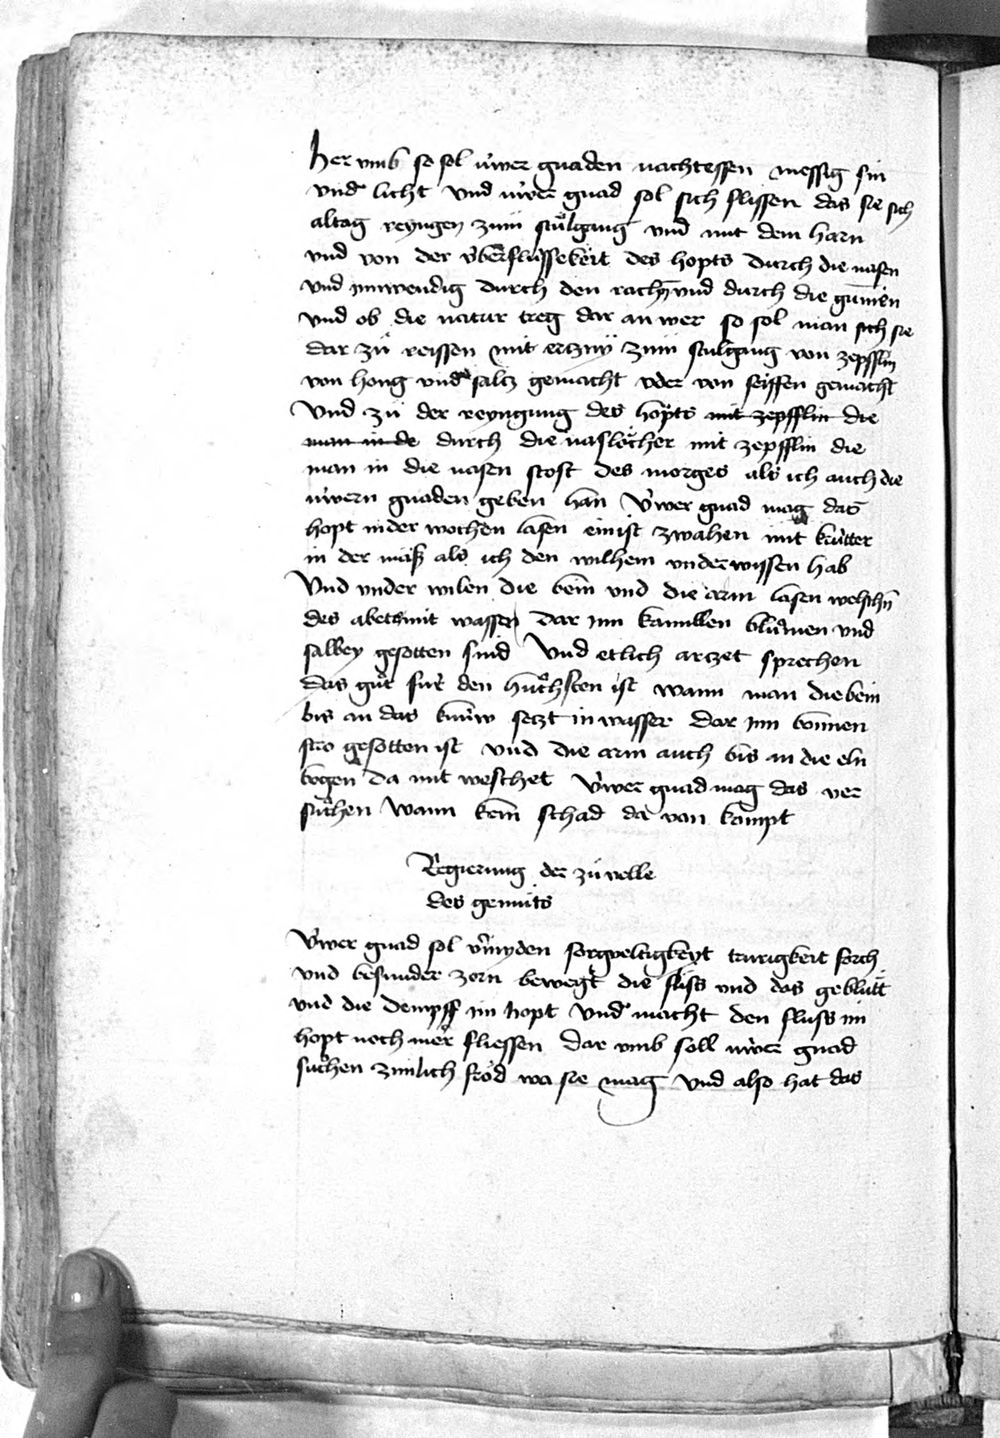 her vmb so sol uͥwer gnaden nachtessen messig sin
vnd licht vnd uͥwer gnad sol sich flissen das sie sich
altag reyngen zum stuͦlgang vnd mit dem harn
vnd von der v̈berflussekeit des hopts durch die nasen
vnd inwendig durch den rachen̄ vnd durch die gumēn
vnd ob die natur treg dar an wer so sol man sich sie
dar zuͦ reissen mit ertzny zum stulgang von zepfflin
von hong vnd saltz gemacht oder von seyffen gemacht
Vnd zuͦ der reyngung des hopts mit zepfflin die
man in de durch die naslöcher mit zepfflin die
man in die nasen stost des morges als ich auch die
uͥwern gnaden geben han Vͥwer gnad mag das
hopt in der wochen lasen einist zwahen mit kruͥtter
in der maß als ich den wilhem vnderwissen hab
Vnd vnder wilen die bein vnd die arm lasen weschn̄
des abetz mit wasser dar inn kamillen bluͦmen vnd
salbey gesotten sind Vnd etlich artzet sprechen
das guͦt fuͥr den huͦsten ist wann man die bein
bis an das knuͥw setzt in wasser dar inn bonnen
stro gesotten ist vnd die arm auch bis an die eln
bogen da mit weschet Vͥwer gnad mag das ver
suͦchen wann kein schad da von kompt
Regierung der zuͦvelle
des gemuͤts
Vͥwer gnad sol v̄myden sorgveltigkeyt trurigkeit forch
vnd besunder zorn bewegt die fluss vnd das gebluͤtt
vnd die dempff im hopt vnd macht den fluss im
hopt noch mer fliessen dar vmb soll uͥwer gnad
suͦchen zimlich froͤd wa sie mag vnd also hat das